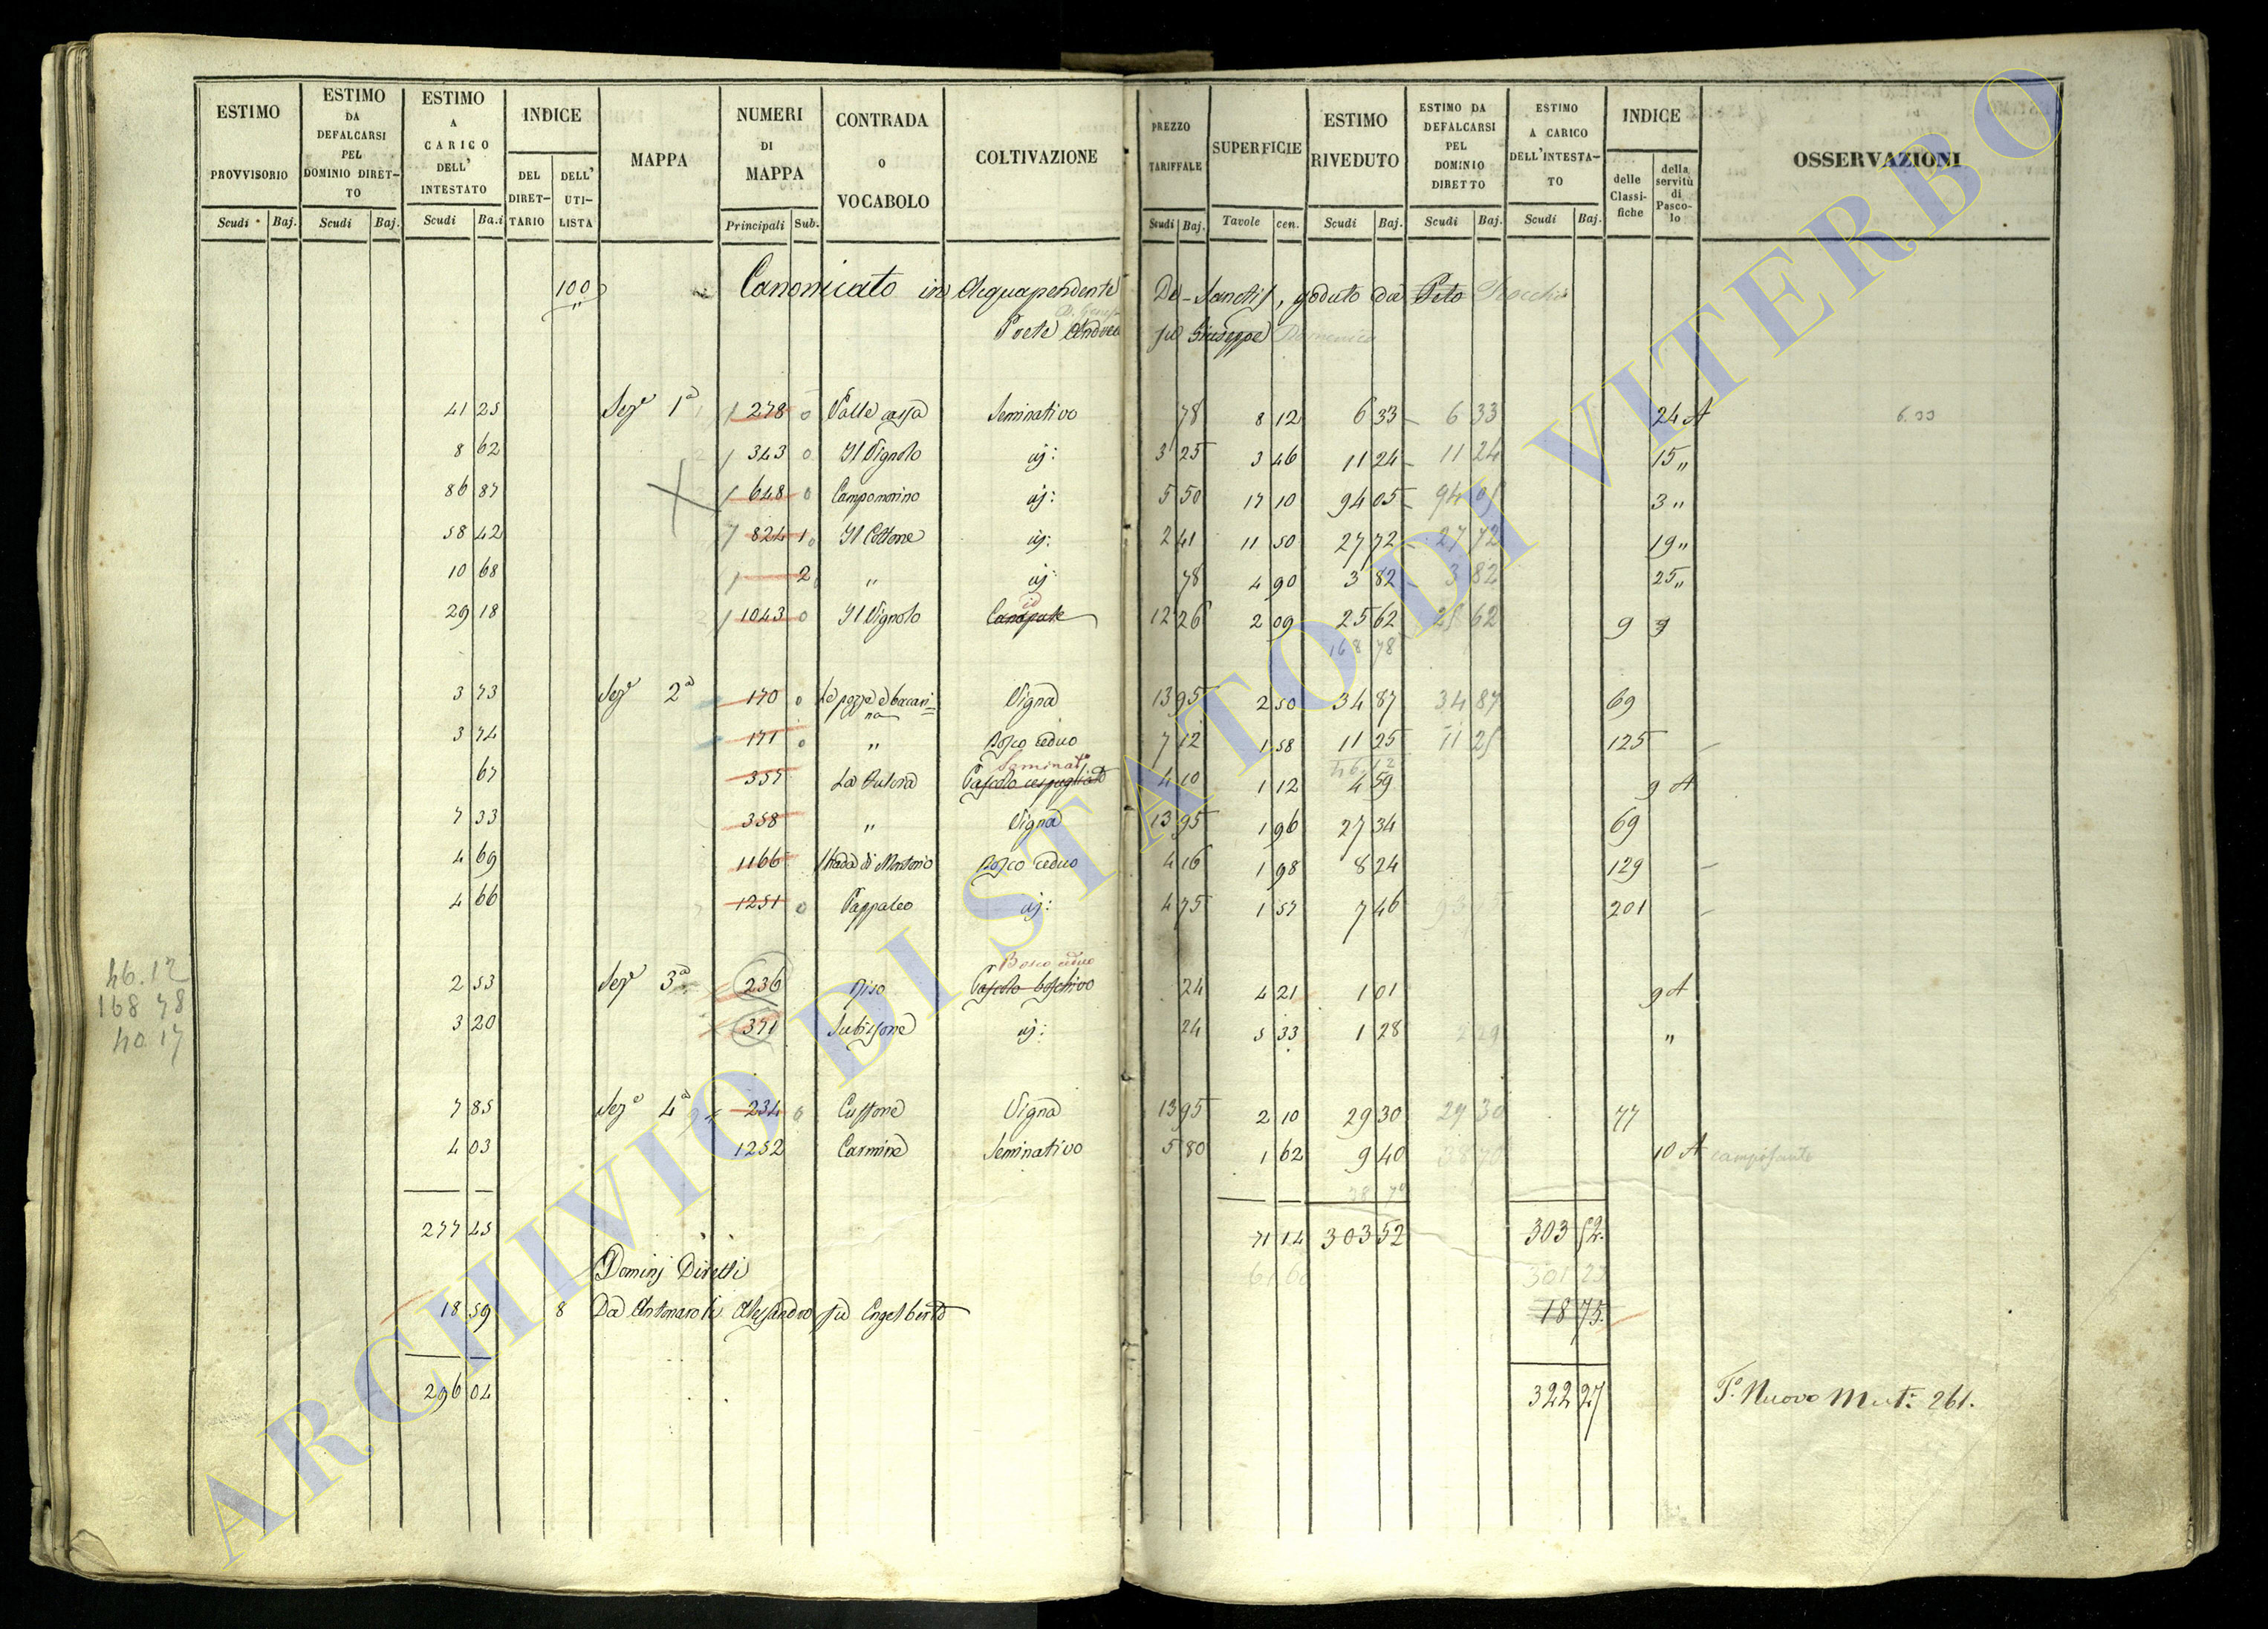 ESTIMO PROVVISORIO Scudi Baj.
ESTIMO DA DEFALCARSI PEL DOMINIO DIRET-TO Scudi Baj.
ESTIMO A CARICO DELL' INTESTATO Scudi Ba.i
INDICE DEL DIRET-TARIO DELL' UTI-LISTA
MAPPA
NUMERI DI MAPPA Principali Sub.
CONTRADA O VOCABOLO
COLTIVAZIONE
PREZZO TARIFFALE Scudi Baj.
SUPERFICIE Tavole cen.
ESTIMO RIVEDUTO Scudi Baj.
ESTIMO DA DEFALCARSI PEL DOMINIO DIRETTO Scudi Baj.
ESTIMO A CARICO DELL'INTESTA-TO Scudi Baj.
INDICE delle Classi-fiche della servitù di Pasco-lo
OSSERVAZIONI
100 Canonicato in Acquapendente De-Sanctis, goduto da
Andrea fu Giuseppe Domenico
41 25 Sez.e 1a 278 0 Valle Seminativo 78 8 12 6 33 6 33 24 A 6.33
8 62 343 0 Il Vignolo id: 3 25 3 46 11 24 11 24 15 "
86 87 648 0 Campomorino id: 5 50 17 10 94 05 94 05 3 "
58 42 824 1 0 Il id: 2 41 11 50 27 72 27 72 19 "
10 68 2 " id 78 4 90 3 82 3 82 25 "
29 18 1043 0 Il Vignolo Canapule id 12 26 2 09 25 62 25 62 9
168 78
3 73 Sez.e 2a 170 0 Vigna 13 95 2 50 34 87 34 87 69
3 74 171 0 " Bosco ceduo 7 12 1 58 11 25 11 25 125
46 12
67 357 La Pascolo cespugliato Seminato 4 10 1 12 4 59 9 A
7 33 358 " Vigna 13 95 1 96 27 34 69
4 69 1166 Strada di Montorio Bosco ceduo 4 16 1 98 8 24 129
4 66 1251 0 Pappaleo id: 4 75 1 57 7 46 201
46.12
168 78
40.17
2 53 Sez.e 3a 236 Pascolo boschivo Bosco ceduo 24 4 21 1 01 9 A
3 20 371 Subissone id: 24 5 33 1 28 2 29 "
7 85 Sez.e 4a 234 0 Vigna 13 95 2 10 29 30 29 30 77
4 03 1252 Carmine Seminativo 5 80 1 62 9 40 38 70 10 A camposanto
38 70
277 45 71 14 303 52 303 52.
Dominj Diretti
301 23
18 59 8 Da Alessandro fu Engelberto 18 75.
296 04 322 27 T.o Nuovo Mut.e 261.
ARCHIVIO DI STATO DI VITERBO